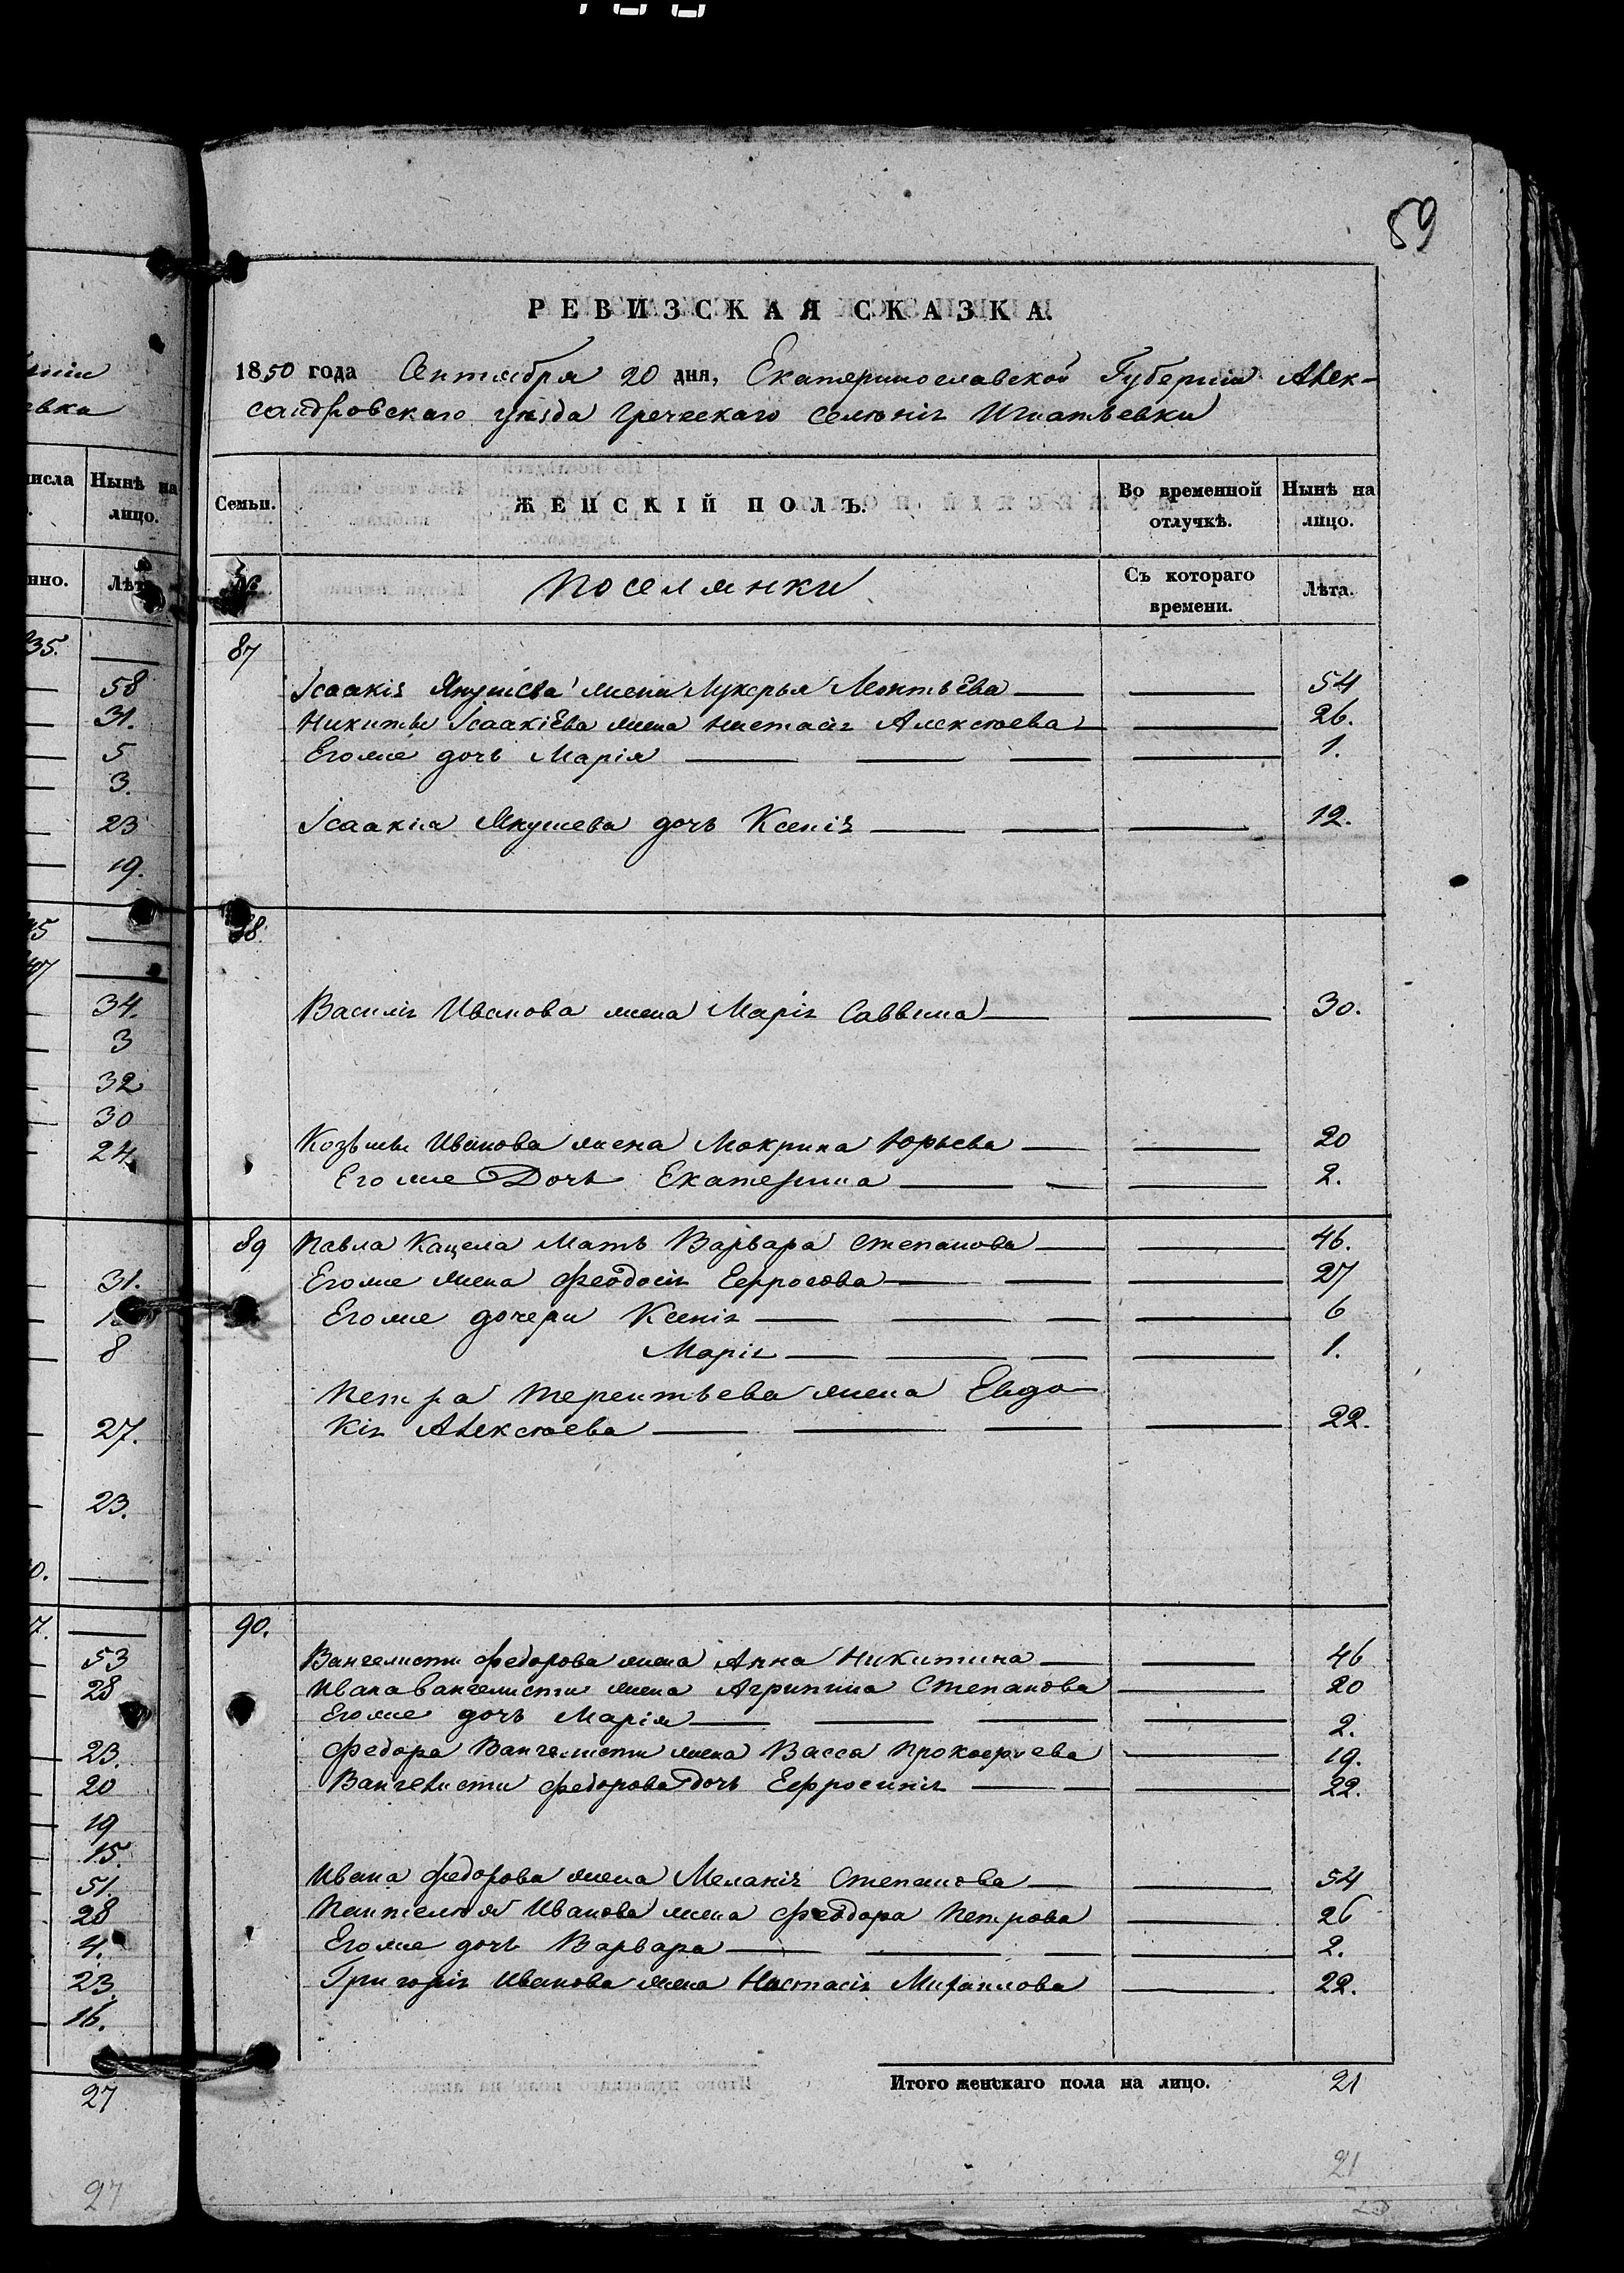 59
РЕВИЗСКАЯ СКАЗКА.
1850 года Сентября 20 дня, Екатеринославской Губерніи Алек-
сандровскаго уѣзда Греческаго селенія Игнатьевки
исла Нынѣ на лицо.
Семьи. ЖЕНСКІЙ ПОЛЪ. Во временной отлучкѣ. Нынѣ на лицо.
нно. Лѣта
№ Поселянки Съ котораго времени. Лѣта.
35.
87
58
Ісаакія Якушева жена Лукерья Леонтьева 54
31.
Никиты Ісаакіева жена Настасія Алексѣева 26.
5
Егоже дочь Марія 1.
3.
23
Ісаакія Якушева дочь Ксенія 12.
19.
88.
34.
Василія Иванова жена Марія Саввина 30.
3
32
30
24.
Козьмы Иванова жена Мокрина Юрьева 20
Егоже Дочь Екатерина 2.
89 Павла Кацела Мать Варвара Степанова 46.
31.
Егоже жена Феодосія 27
Егоже дочери Ксенія 6
8
Марія 1.
Петра Терентьева жена Евдо-
27.
кія Алексѣева 22.
23.
90.
53
Вангелисти Федорова жена Анна Никитина 46
28
Ивана Вангелисти жена Агрипина Степанова 20
Егоже дочь Марія 2.
23.
Федора Вангелисти жена Васса Прокофіева 19.
20
Вангелисти Федорова дочь Ефросинія 22.
19
15.
51.
Ивана Федорова жена Меланія Степанова 54
28
Пантелѣя Иванова жена Феодора Петрова 26
4.
Егоже дочь Варвара 2.
23.
Григорія Иванова жена Настасія Михаилова 22.
16.
27
Итого женскаго пола на лицо. 21
27
21